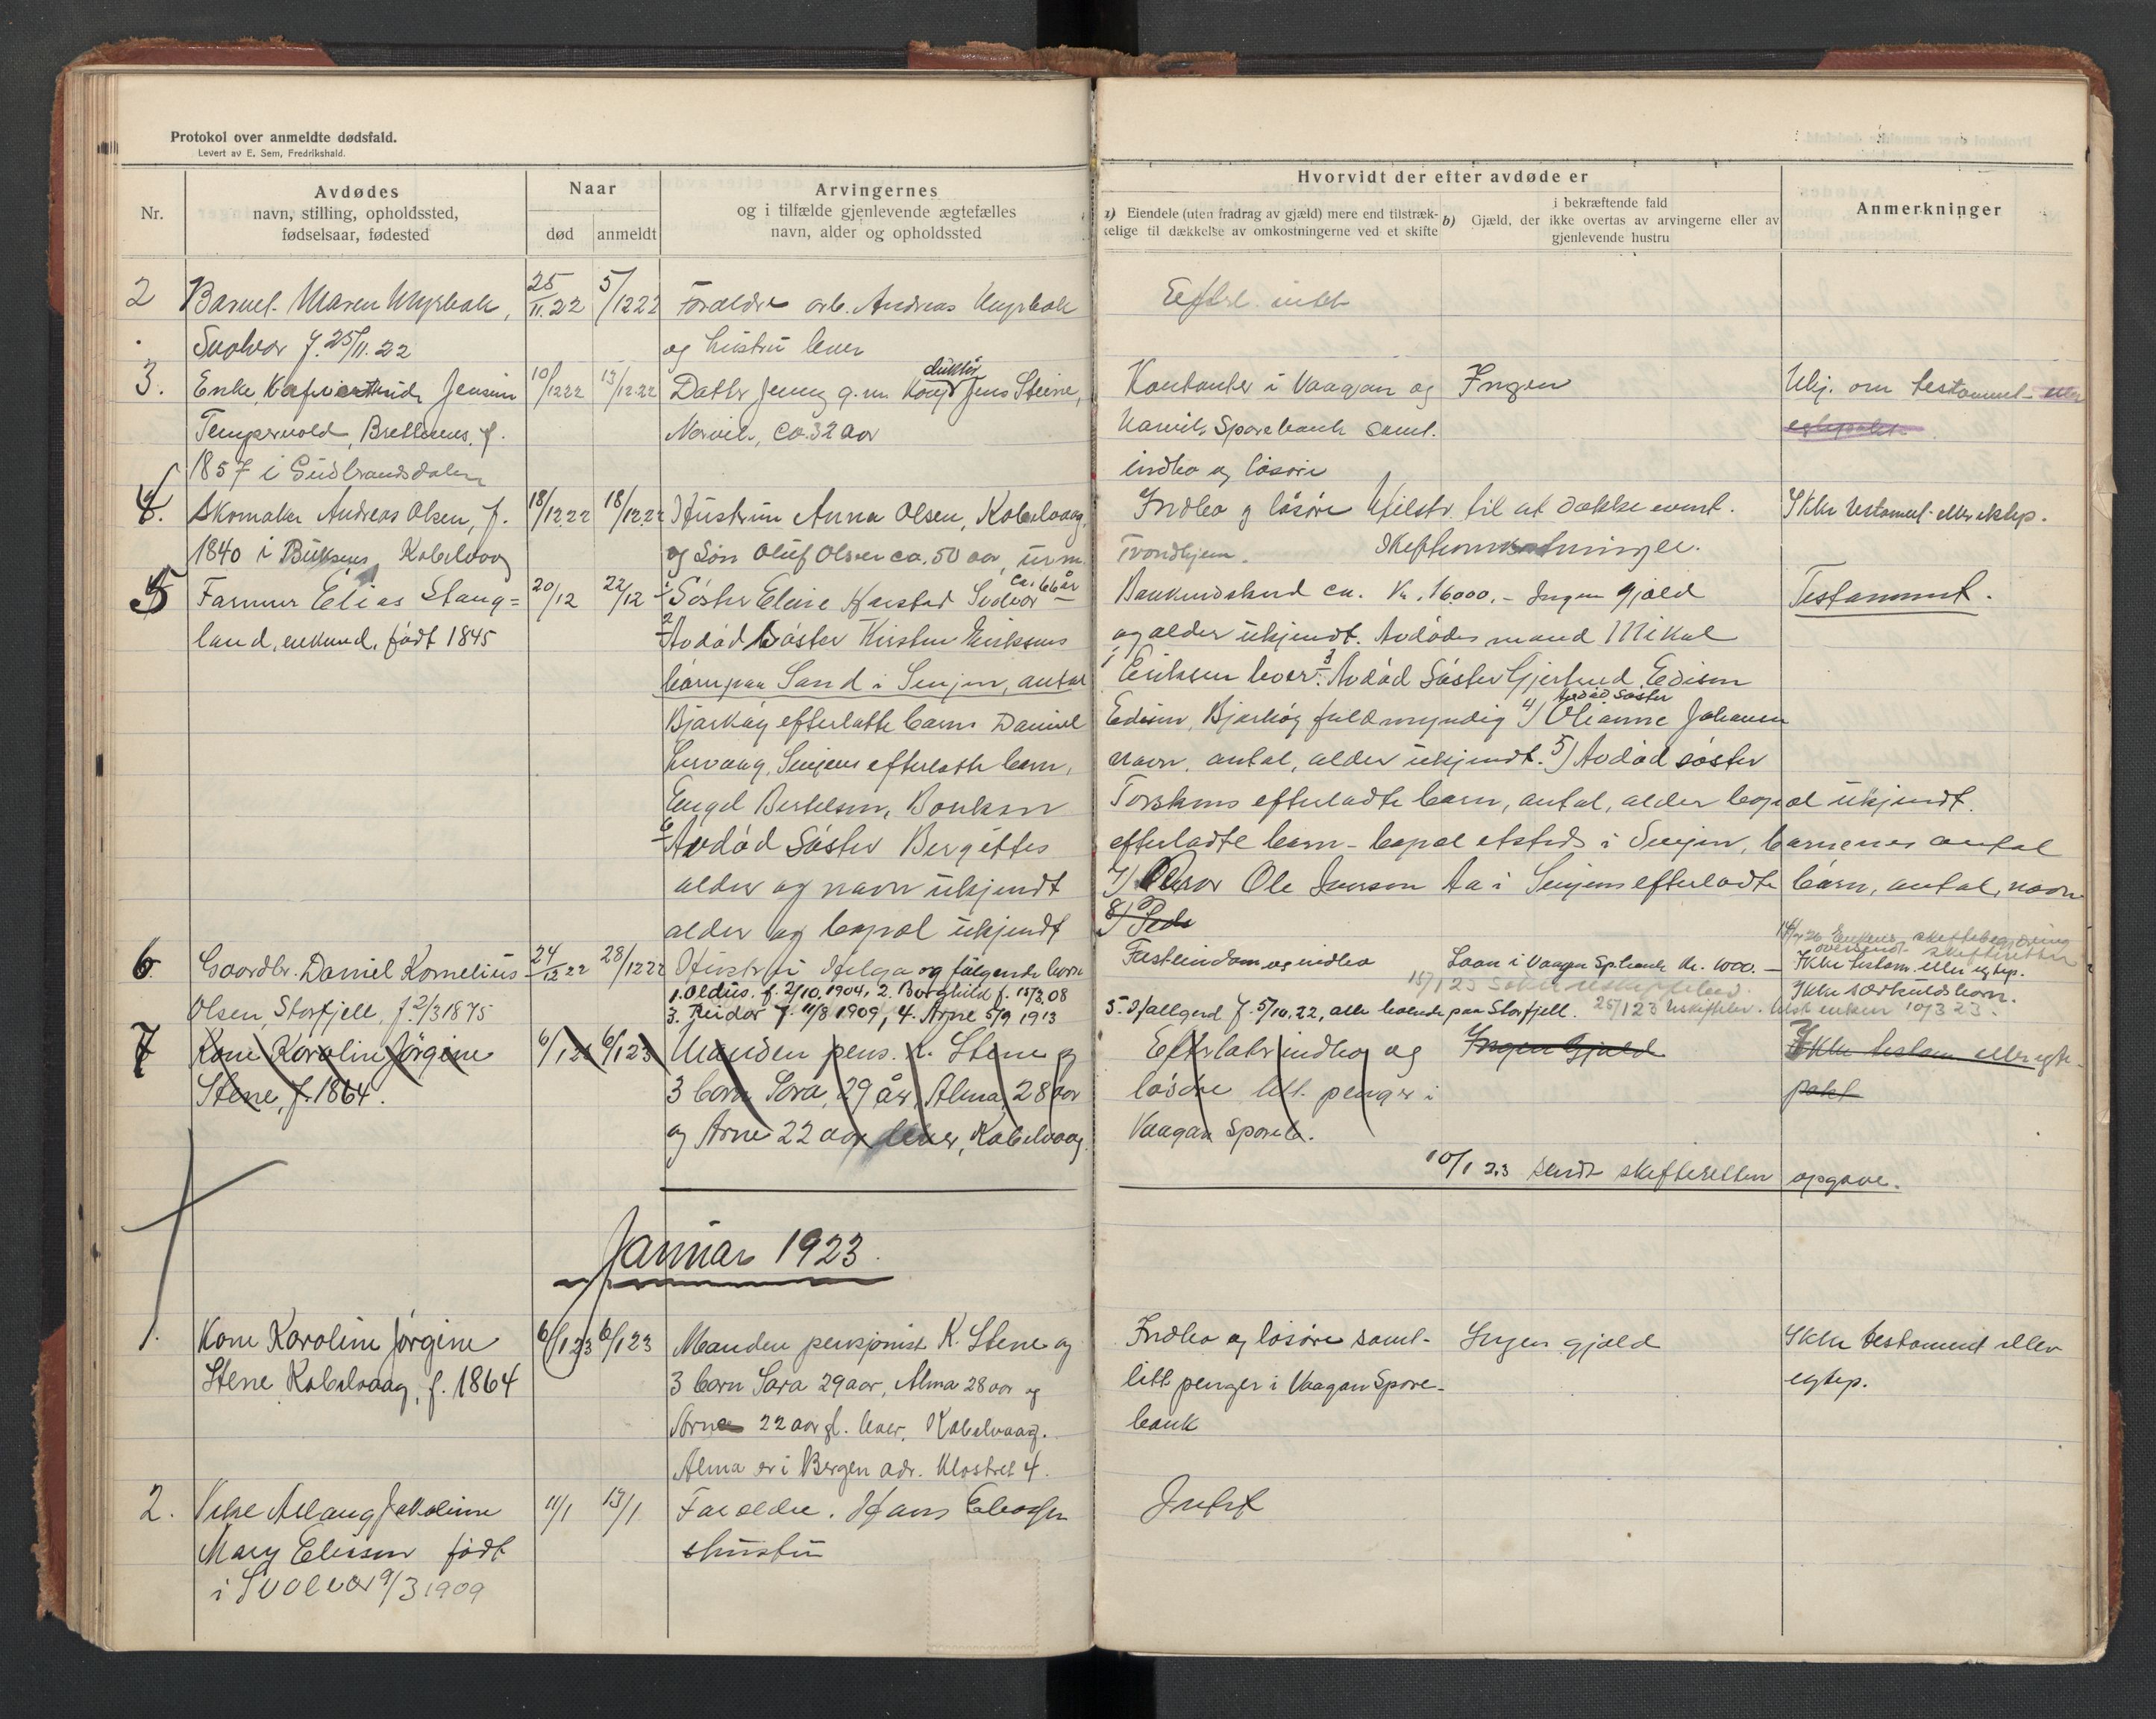 Protokol over anmeldte dødsfald.
Levert av E. Sem, Fredrikshald.
Nr.
Avdødes
navn, stilling, opholdssted,
fødselsaar, fødested
Naar
død
anmeldt
Arvingernes
og i tilfælde gjenlevende ægtefælles
navn, alder og opholdssted
Hvorvidt der efter avdøde er
a) Eiendele (uten fradrag av gjæld) mere end tilstræk-
kelige til dækkelse av omkostningerne ved et skifte
i bekræftende fald
b) Gjæld, der ikke overtas av arvingerne eller av
gjenlevende hustru
Anmerkninger
2 Barnet Maren Myrbak, 25/11.22 5/12 22 Forældre arb. Andreas Myrbak Efterl. intet
Svolvær f. 25/11.22 og hustru lever
3. Enke Jensine 10/12 22 13/12.22 Datter Jenny g.m. Jens Steine, Kontanter i Vaagan og Ingen Ukj. om testament eller
Brettesnes, f. Narvik, ca. 32 aar Narvik Sparebank samt.
1857 i Gudbrandsdalen indbo og løsøre
4. Skomaker Andreas Olsen, f. 18/12 22 18/12 22 Hustrun Anna Olsen, Kabelvaag, Indbo og løsøre Utilstr. til at dække event. Ikke testament eller ektep.
1840 i Buksnes, Kabelvaag og Søn Oluf Olsen ca. 50 aar, Trondhjem. skifteomkostninger.
ca. 66 år
5 Farmer Elias Stang= 20/12 22/12 1 Søster Elise Kjærstad Svolvær Bankindskud ca. Kr. 16000.- Ingen gjæld Testament.
land, enkemd, født 1845 2 Avdød Søster Kirsten Eriksens og alder ukjendt. Avdødes mand Mikal
barn paa Sand i Senjen, antal Eriksen lever. 3 Avdød Søster Gjertrud Edisen
Avdød Søster
Bjarkøy efterlatte barn Daniel Edisen, Bjarkøy fuldmyndig 4) Olianne Johansen
Senjens efterlatte barn, navn, antal, alder ukjendt. 5) Avdød søster
Engel Bertelsen, Torskens efterladte barn, antal, alder bopæl ukjendt.
6 Avdød Søster Bergittes efterladte barn - bopæl etsteds i Senjen, barnenes antal
alder og navn ukjendt 7) Bror Ole Iversen Aa i Senjens efterladte barn, antal, navn
alder og bopæl ukjendt 8) Peder
skiftebegjæring
oversendt skifteretten
6. Gaardbr. Daniel Kornelius 24/12 22 28/12 22 Hustru Helga og følgende barn Fasteiendom og indbo Laan i Vaagan Sp.bank kr. 1000.- Ikke testam. eller egtep.
1. Aldus. f. 2/10.1904, 2. Borghild f. 15/3.08 Ikke særkuldsbarn.
Olsen, Storfjell, f. 2/3 1875 3. Reidar f. 11/8 1909, 4. Arne 5/9 1913 5. Hallgerd f. 5/10.22, alle boende paa Storfjell. 10/3 23.
7 Kone Karoline Jørgine 6/1 23 6/1 23 Manden pens. K. Stene og Efterlater indbo og Ingen Gjæld Ikke testam eller egte-
Stene, f. 1864. 3 barn Sara, 29 år, Alma, 28 aar løsøre litt penger i pakt
og Arne 22 aar lever, Kabelvaag. Vaagan Spareb.
10/1 23 sendt skifteretten opgave.
Januar 1923.
1. Kone Karoline Jørgine 6/1 23 6/1 23 Manden pensjonist K. Stene og Indbo og løsøre samt Ingen gjæld Ikke testament eller
Stene Kabelvaag, f. 1864 3 barn Sara 29 aar, Alma 28 aar og litt penger i Vaagan Spare- egtep.
Arne 22 aar gl. lever, Kabelvaag. bank
Alma er i Bergen adr. Klostret 4.
2. Pike Aslaug Jakobine 11/1 13/1 Forældre. Hans Intet
Mary Eliesen født hustru
i Svolvær 9/3 1909